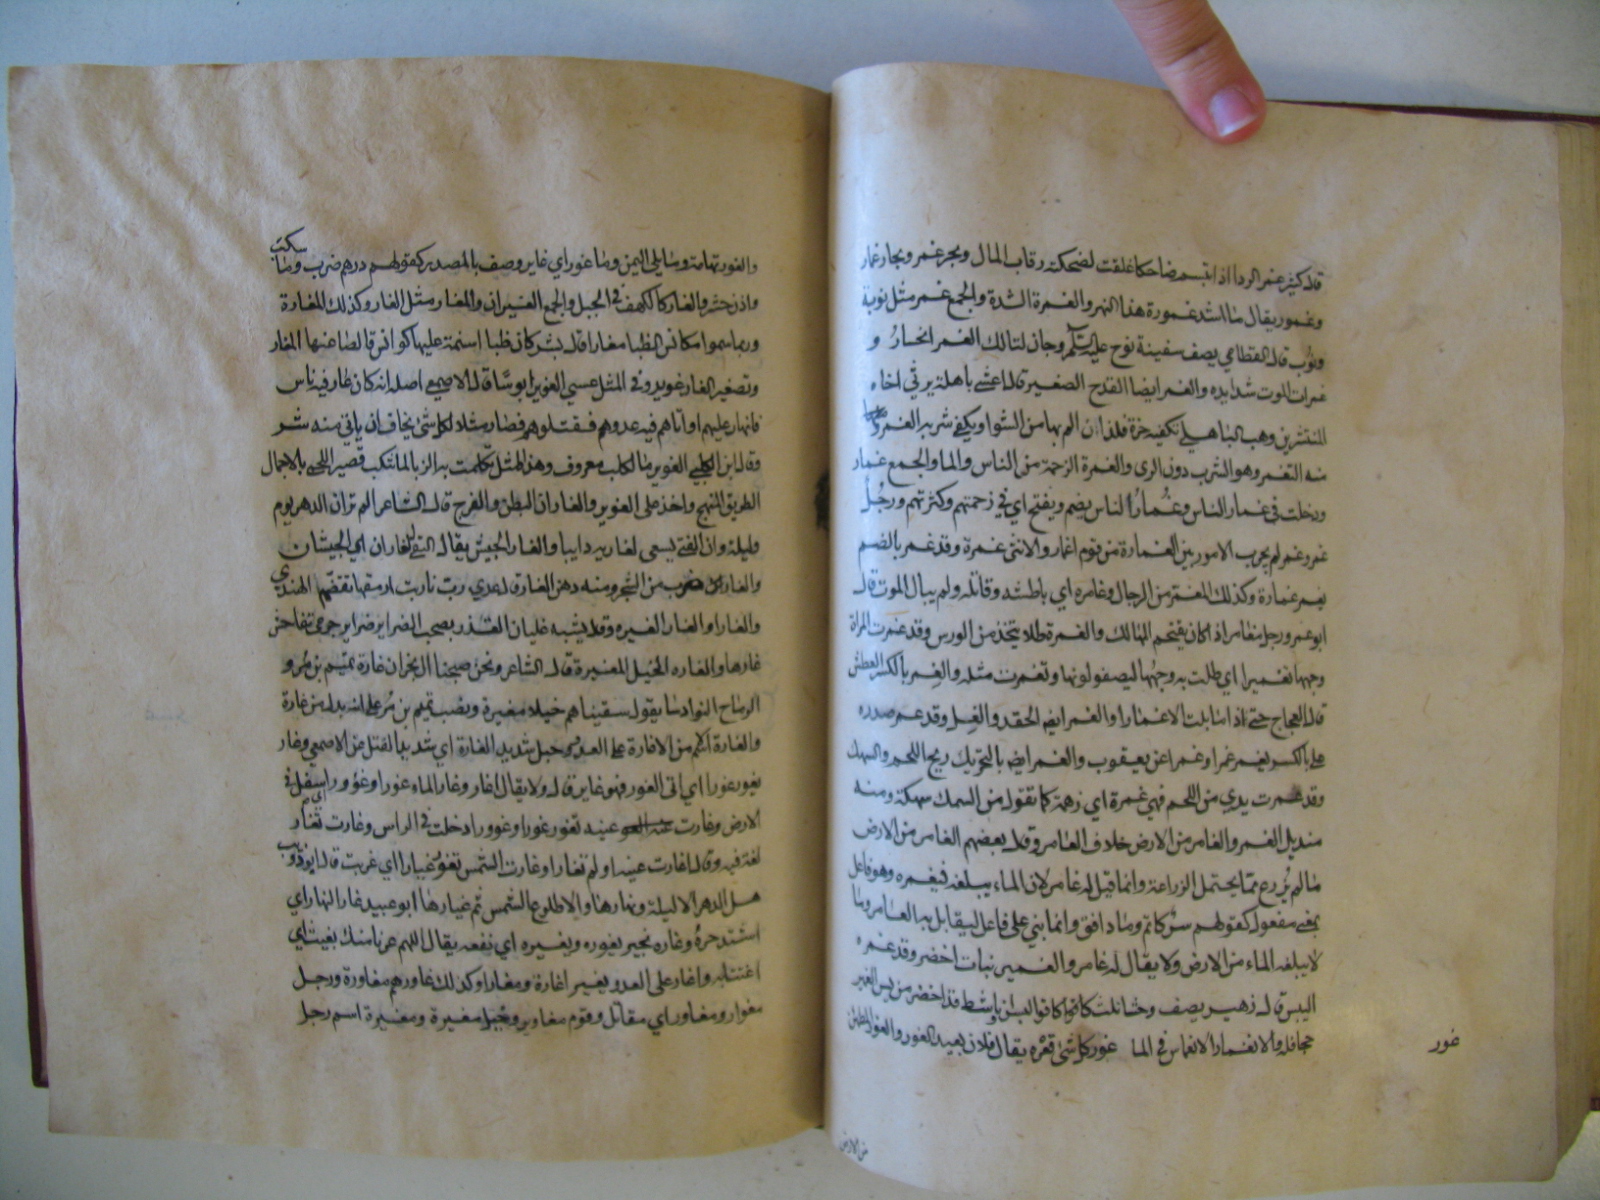 قد كثير غمر الردا اذا تبسم ضاحكا غلقت لضحكته رقاب المال وبحر غمر وبحار غمار
وغمور يقال ما اشد غمورة هذا النهر والغمرة الشدة والجمع غمر مثل نوبة
ونوب قال القطامي يصف سفينة نوح عليه السلم وحان لتالك الغمر انحسار و
غمرات الموت شدايده والغمر ايضا القدح الصغير قال اعشى باهلة يرثي اخاه
المنتشر بن وهب الباهلي تكفيه حزة فلذ ان الم بها من الشوا ويكفي شربه الغمر
منه التغمر وهو الشرب دون الري والغمرة الزحمة من الناس والما والجمع غمار
ودخلت في غمار الناس وغمار الناس يضم ويفتح اي في زحمتهم وكثرتهم ورجل
غمر وغمر لم يجرب الامور بين الغمارة من قوم اغمار والانثى غمرة وقد غمر بالضم
يغمر غمارة وكذلك المغمر من الرجال وغامره اي باطشه وقاتله ولم يبال الموت قال
ابو عمرو رجل مغامر اذا كان يقتحم المهالك والغمرة طلا يتخذ من الورس وقد غمرت المراة
وجهها تغميرا اي طلت به وجهها ليصفو لونها وتغمرت مثله والغمر بالكسر العطش
قال العجاج حتى اذا ما بلت الاغمارا والغمر ايضا الحقد والغل وقد غمر صدره
علي بالكسر يغمر غمرا وغمرا عن يعقوب والغمر ايضا بالتحريك ريح اللحم والسهك
وقد غمرت يدي من اللحم فهي غمرة اي زهمة كما تقول من السمك سهكة ومنه
منديل الغمر والغامر من الارض خلاف العامر وقال بعضهم الغامر من الارض
ما لم يزرع مما يحتمل الزراعة وانما قيل له غامر لان الماء يبلغه فيغمره وهو فاعل
بمعنى مفعول كقولهم سر كاتم وما دافق وانما بني على فاعل ليقابل به العامر وما
لا يبلغه الماء من الارض ولا يقال له غامر والغمير نبات اخضر وقد غمره
اليبس قال زهير يصف وحشا ثلث كاقواس وناشط قد اخضر من لس الغمير
جحافله والانغمار الانغماس في الما غور كل شئ قعره يقال فلان بعيد الغور والغور المطمئن
غور
من الارض
والغور تهامة وما يلي اليمن وما غور اي غاير وصف بالمصدر كقولهم درهم ضرب وما سكب
واذن حشر والغار كالكهف في الجبل والجمع الغيران والمغار مثل الغار وكذلك المغارة
وربما سموا مكانس الظبا مغارا قال بشر كان ظبا اسنمة عليها كوانس قالصا عنها المغار
وتصغير الغار غوير وفي المثل عسى الغوير ابوسا قال الاصمعي اصله انه كان غار فيه ناس
فانهار عليهم او اتاهم فيه عدوهم فقتلوهم فصار مثلا لكل شئ يخاف ان ياتي منه شر
وقال ابن الكلبي الغوير ما لكلب معروف وهذا المثل تكلمت به الزبا لما تنكب قصير اللخمي بالاجمال
الطريق المنهج واخذ على الغوير والغاران البطن والفرج قال الشاعر الم تر ان الدهر يوم
وليلة وان الفتى يسعى لغاريه دايبا والغار الجيش يقال التقى الغاران اي الجيشان
والغار ضرب من الشجر ومنه دهن الغار قال عدي رب نار بت ارمقها تقضم الهندي
والغارا والغار الغيرة وقال يشبه غليان القدر بصخب الضراير ضراير حرمي تفاحش
غارها والغارة الخيل المغيرة قال الشاعر ونحن صبحنا ال نجران غارة تميم بن مر و
الرماح النوادسا يقول سقيناهم خيلا مغيرة ونصب تميم بن مر على انه بدل من غارة
والغارة الاسم من الاغارة على العدو حبل شديد الغارة اي شديد الفتل عن الاصمعي وغار
يغور غورا اي اتى الغور فهو غاير قال ولا يقال اغار وغار الماء غورا وغوورا اي سفل في
الارض وغارت عينه تغور غورا وغوورا دخلت في الراس وغارت تغار
لغة فيه وقال اغارت عينه ام لم تغارا وغارت الشمس تغور غيارا اي غربت قال ابو ذويب
هل الدهر الا ليلة ونهارها والا طلوع الشمس ثم غيارها ابو عبيد غار النهار اي
اشتد حره وغاره بخير يغوره ويغيره اي نفعه يقال اللهم غرنا منك بغيث اي
اغثنا به واغار على العدو يغير اغارة ومغارا وكذلك غاورهم مغاورة ورجل
مغوار ومغاور اي مقاتل وقوم مغاوير وخيل مغيرة ومغيرة اسم رجل